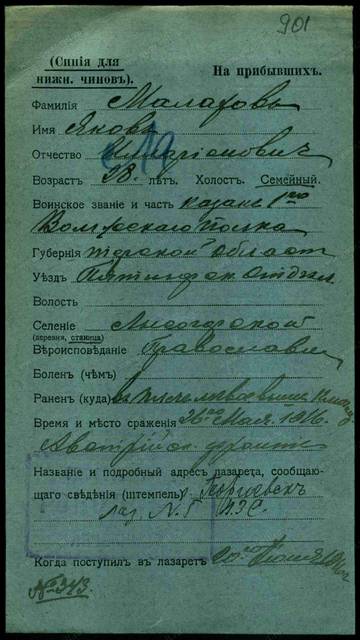 901
(Синія для
нижн. чиновъ).
На прибывшихъ.
Фамилія Малаховъ
Имя Яковъ
Отчество Иларіоновичъ
Возрастъ 28. лѣтъ. Холост. Семейный.
Воинское званіе и часть казакъ 1го
Волгскаго Полка
Губернія Терской Област
Уѣздъ Пятигорск Отдѣл.
Волость
Селеніе
(деревня, станица)
Вѣроисповѣданіе Православн
Боленъ (чѣмъ)
Раненъ (куда) въ
Время и мѣсто сраженія 26го Мая 1916.
Австрійск. фронтъ
Названіе и подробный адресъ лазарета, сообщаю-
щаго свѣдѣнія (штемпель)
Лаз. №
Когда поступилъ въ лазаретъ
№ 343.